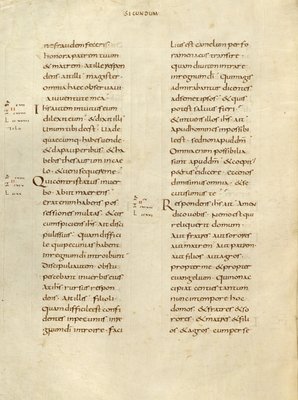 SECUNDUM
ne fraudem feceris
honora patrem tuum
& matrem. At ille respon
dens ait illi magister
omnia haec obserua
ui a iuuentute mea.
Ihs autem intuitus eum
dilexit eum & dixit illi
Unum tibi deest. Uade
quaecumq; habes uende
& da pauperibus & ha
bebis thesaurum in cae
lo & ueni sequere me
Qui contristatus in uer
bo. Abiit maerens
erat enim habens pos
sessiones multas & cir
cumspiciens ihs ait disci
pulis suis. Quam diffici
le qui pecunias habent
in regnum di introibunt
Discipuli autem obstu
pescebant in uerbis eius
at ihs rursus respon
dens. Ait illis. Filioli
Quam difficile est confi
dentes in pecuniis in re
gnum di introire. Faci
lius est camelum per fo
ramen acus transire
quam diuitem intrare
in regnum di. Qui magis
admirabantur dicentes
ad semet ipsos & quis
potest saluus fieri
& intuens illos ihs ait
Apud homines inpossibi
le est. sed non apud dm.
Omnia enim possibilia
sunt apud dm. & coepit
petrus ei dicere. Ecce nos
dimisimus omnia &
secuti sumus te
Respondens ihs ait. Amen
dico uobis. Nemo est qui
reliquerit domum
aut fratres aut sorores
aut matrem aut patrem
aut filios aut agros
propter me & propter
euangelium. Qui non ac
cipiat centies tantum
nunc in tempore hoc
domos & fratres & so
rores & matres & fili
os & agros cum perse